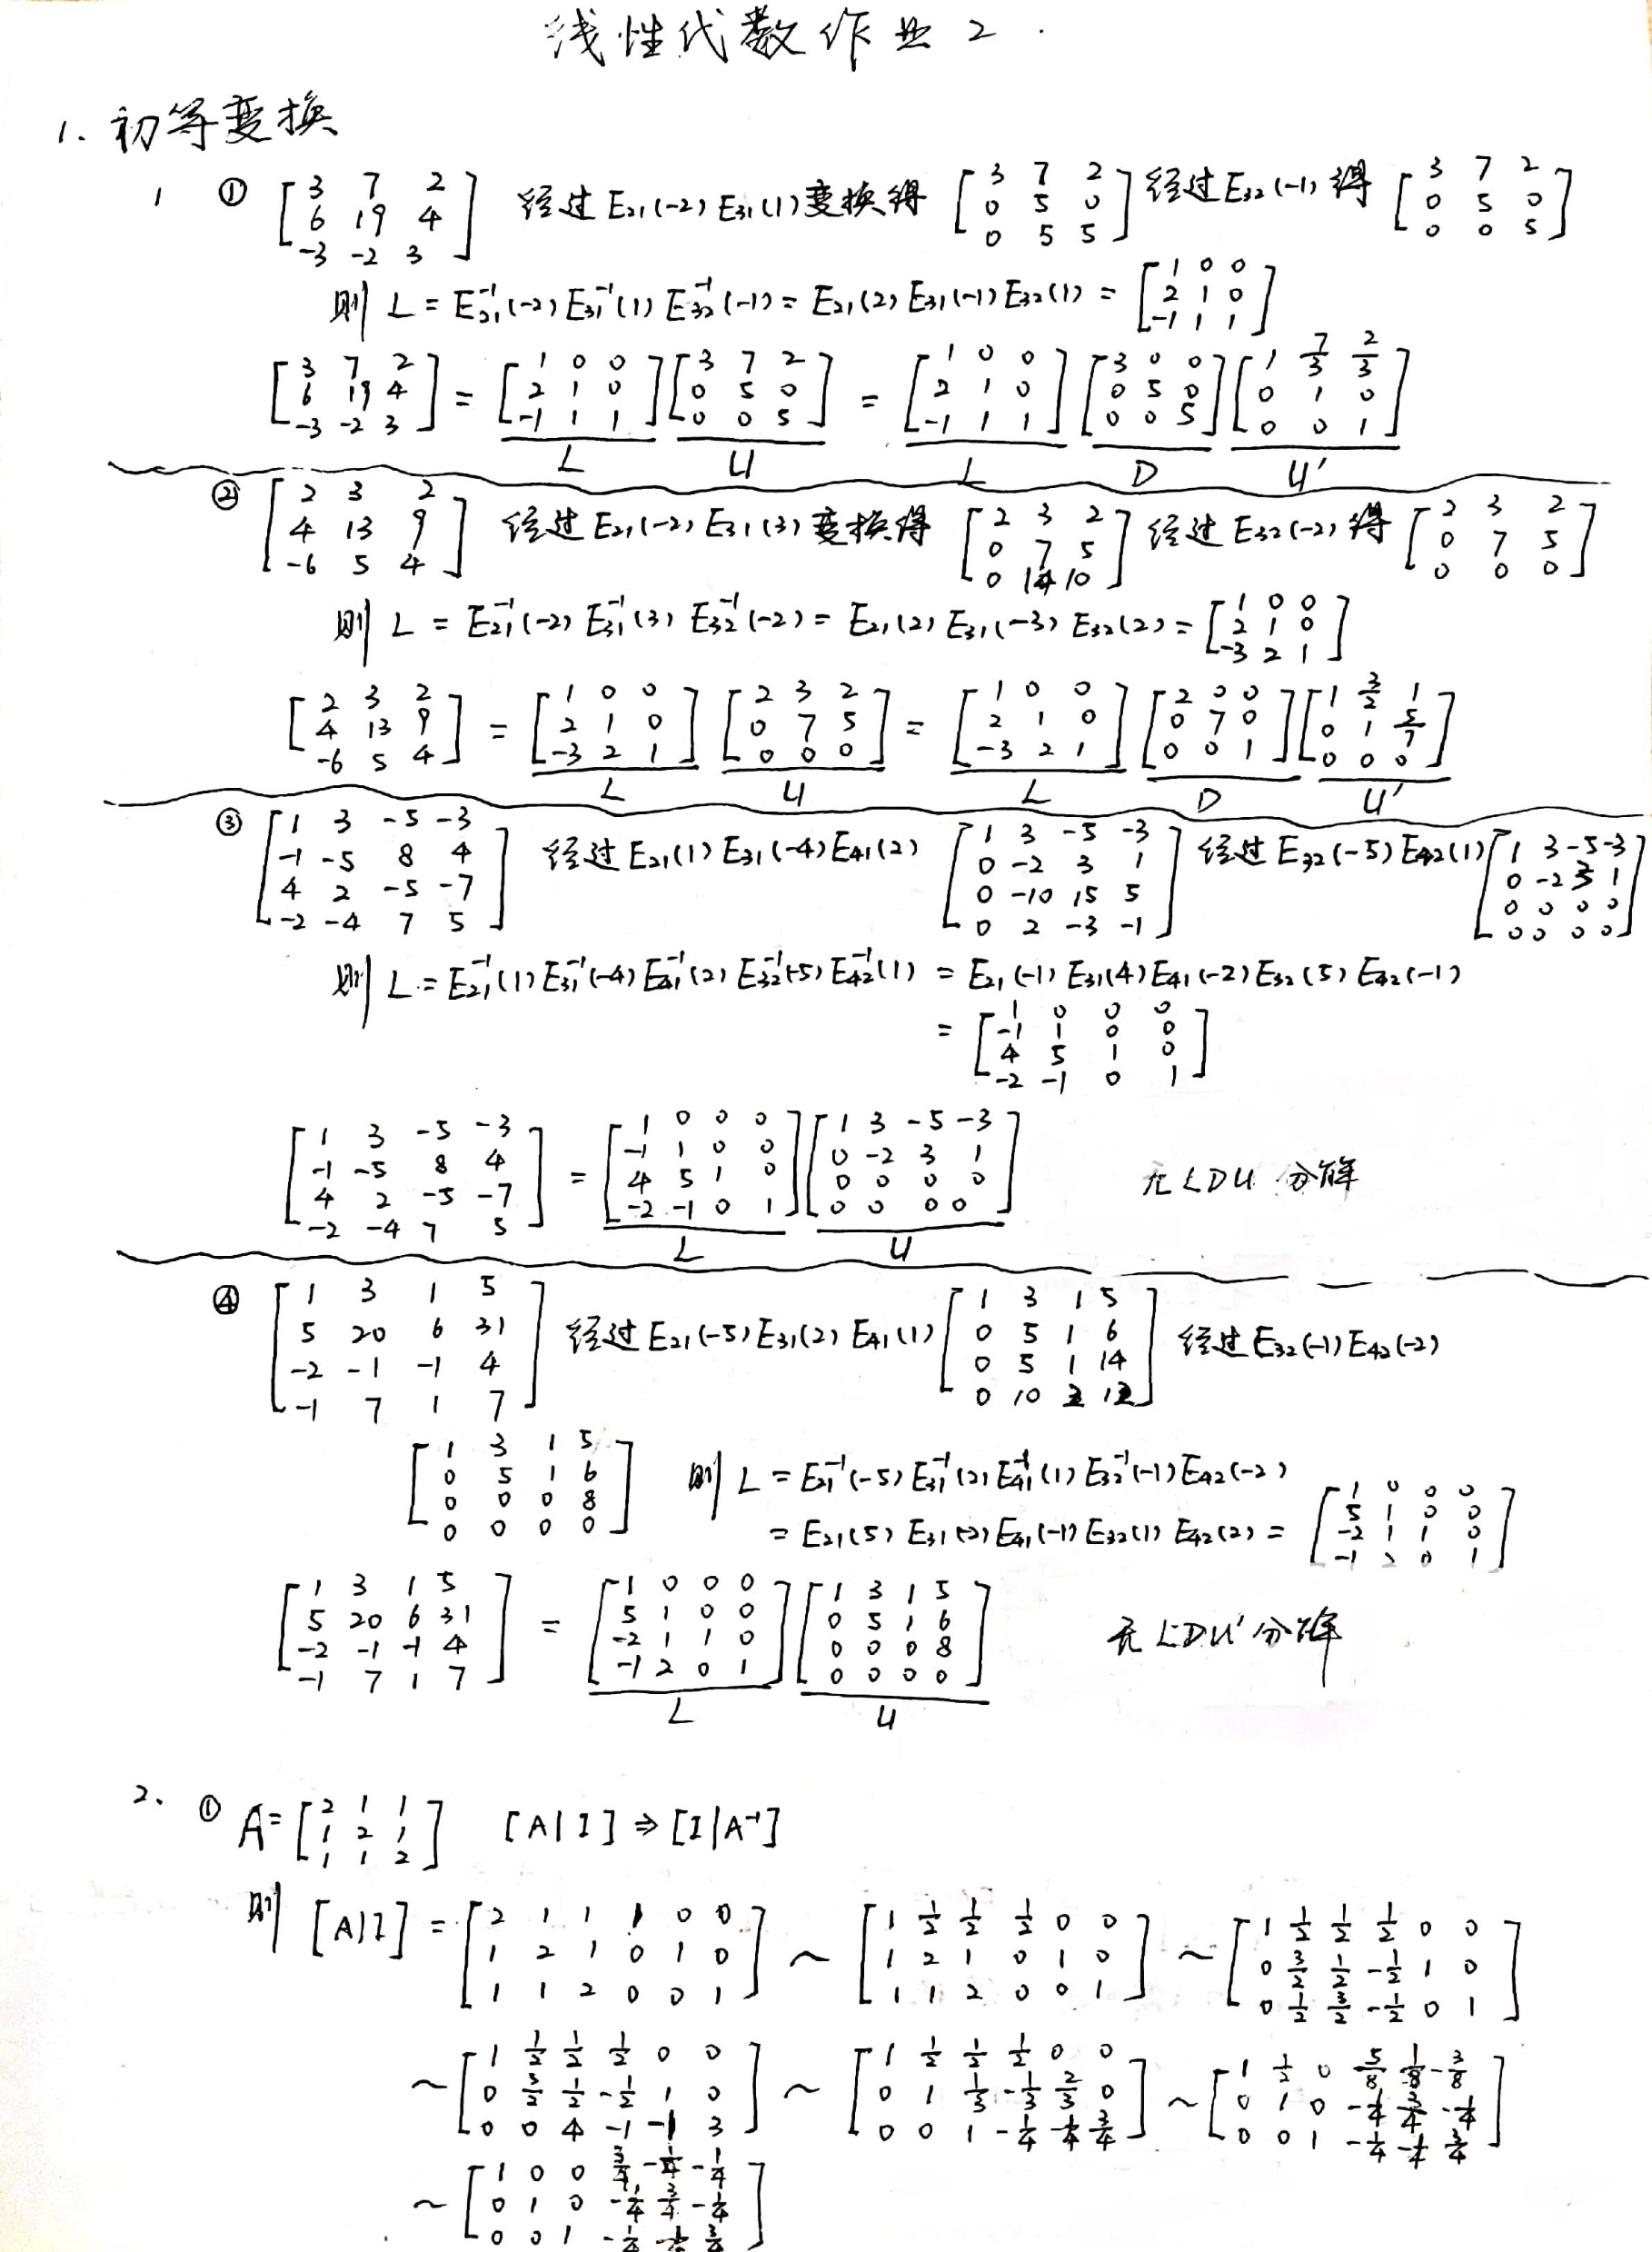 线性代数作业2.
1. 初等变换
1 ① [3 7 2; 6 19 4; -3 -2 3] 经过E₂₁(-2)E₃₁(1)变换得 [3 7 2; 0 5 0; 0 5 5] 经过E₃₂(-1)得 [3 7 2; 0 5 0; 0 0 5]
则 L = E₂₁⁻¹(-2) E₃₁⁻¹(1) E₃₂⁻¹(-1) = E₂₁(2) E₃₁(-1) E₃₂(1) = [1 0 0; 2 1 0; -1 1 1]
[3 7 2; 6 19 4; -3 -2 3] = [1 0 0; 2 1 0; -1 1 1] [3 7 2; 0 5 0; 0 0 5] = [1 0 0; 2 1 0; -1 1 1] [3 0 0; 0 5 0; 0 0 5] [1 7/3 2/3; 0 1 0; 0 0 1]
L U L D U'
② [2 3 2; 4 13 9; -6 5 4] 经过E₂₁(-2) E₃₁(3) 变换得 [2 3 2; 0 7 5; 0 14 10] 经过E₃₂(-2)得 [2 3 2; 0 7 5; 0 0 0]
则 L = E₂₁⁻¹(-2) E₃₁⁻¹(3) E₃₂⁻¹(-2) = E₂₁(2) E₃₁(-3) E₃₂(2) = [1 0 0; 2 1 0; -3 2 1]
[2 3 2; 4 13 9; -6 5 4] = [1 0 0; 2 1 0; -3 2 1] [2 3 2; 0 7 5; 0 0 0] = [1 0 0; 2 1 0; -3 2 1] [2 0 0; 0 7 0; 0 0 1] [1 3/2 1; 0 1 5/7; 0 0 0]
L U L D U'
③ [1 3 -5 -3; -1 -5 8 4; 4 2 -5 -7; -2 -4 7 5] 经过E₂₁(1) E₃₁(-4) E₄₁(2) [1 3 -5 -3; 0 -2 3 1; 0 -10 15 5; 0 2 -3 -1] 经过E₃₂(-5) E₄₂(1) [1 3 -5 -3; 0 -2 3 1; 0 0 0 0; 0 0 0 0]
则 L = E₂₁⁻¹(1) E₃₁⁻¹(-4) E₄₁⁻¹(2) E₃₂⁻¹(-5) E₄₂⁻¹(1) = E₂₁(-1) E₃₁(4) E₄₁(-2) E₃₂(5) E₄₂(-1)
= [1 0 0 0; -1 1 0 0; 4 5 1 0; -2 -1 0 1]
[1 3 -5 -3; -1 -5 8 4; 4 2 -5 -7; -2 -4 7 5] = [1 0 0 0; -1 1 0 0; 4 5 1 0; -2 -1 0 1] [1 3 -5 -3; 0 -2 3 1; 0 0 0 0; 0 0 0 0] 无LDU分解
L U
④ [1 3 1 5; 5 20 6 31; -2 -1 -1 4; -1 7 1 7] 经过E₂₁(-5) E₃₁(2) E₄₁(1) [1 3 1 5; 0 5 1 6; 0 5 1 14; 0 10 2 12] 经过E₃₂(-1) E₄₂(-2)
[1 3 1 5; 0 5 1 6; 0 0 0 8; 0 0 0 0] 则 L = E₂₁⁻¹(-5) E₃₁⁻¹(2) E₄₁⁻¹(1) E₃₂⁻¹(-1) E₄₂(-2)
= E₂₁(5) E₃₁(-2) E₄₁(-1) E₃₂(1) E₄₂(2) = [1 0 0 0; 5 1 0 0; -2 1 1 0; -1 2 0 1]
[1 3 1 5; 5 20 6 31; -2 -1 -1 4; -1 7 1 7] = [1 0 0 0; 5 1 0 0; -2 1 1 0; -1 2 0 1] [1 3 1 5; 0 5 1 6; 0 0 0 8; 0 0 0 0] 无LDU'分解
L U
2. ① A = [2 1 1; 1 2 1; 1 1 2] [A|I] ⇒ [I|A⁻¹]
则 [A|I] = [2 1 1 1 0 0; 1 2 1 0 1 0; 1 1 2 0 0 1] ~ [1 1/2 1/2 1/2 0 0; 1 2 1 0 1 0; 1 1 2 0 0 1] ~ [1 1/2 1/2 1/2 0 0; 0 3/2 1/2 -1/2 1 0; 0 1/2 3/2 -1/2 0 1]
~ [1 1/2 1/2 1/2 0 0; 0 3/2 1/2 -1/2 1 0; 0 0 4 -1 -1 3] ~ [1 1/2 1/2 1/2 0 0; 0 1 1/3 -1/3 2/3 0; 0 0 1 -1/4 -1/4 3/4] ~ [1 1/2 0 5/8 1/8 -3/8; 0 1 0 -1/4 3/4 -1/4; 0 0 1 -1/4 -1/4 3/4]
~ [1 0 0 3/4 -1/4 -1/4; 0 1 0 -1/4 3/4 -1/4; 0 0 1 -1/4 -1/4 3/4]